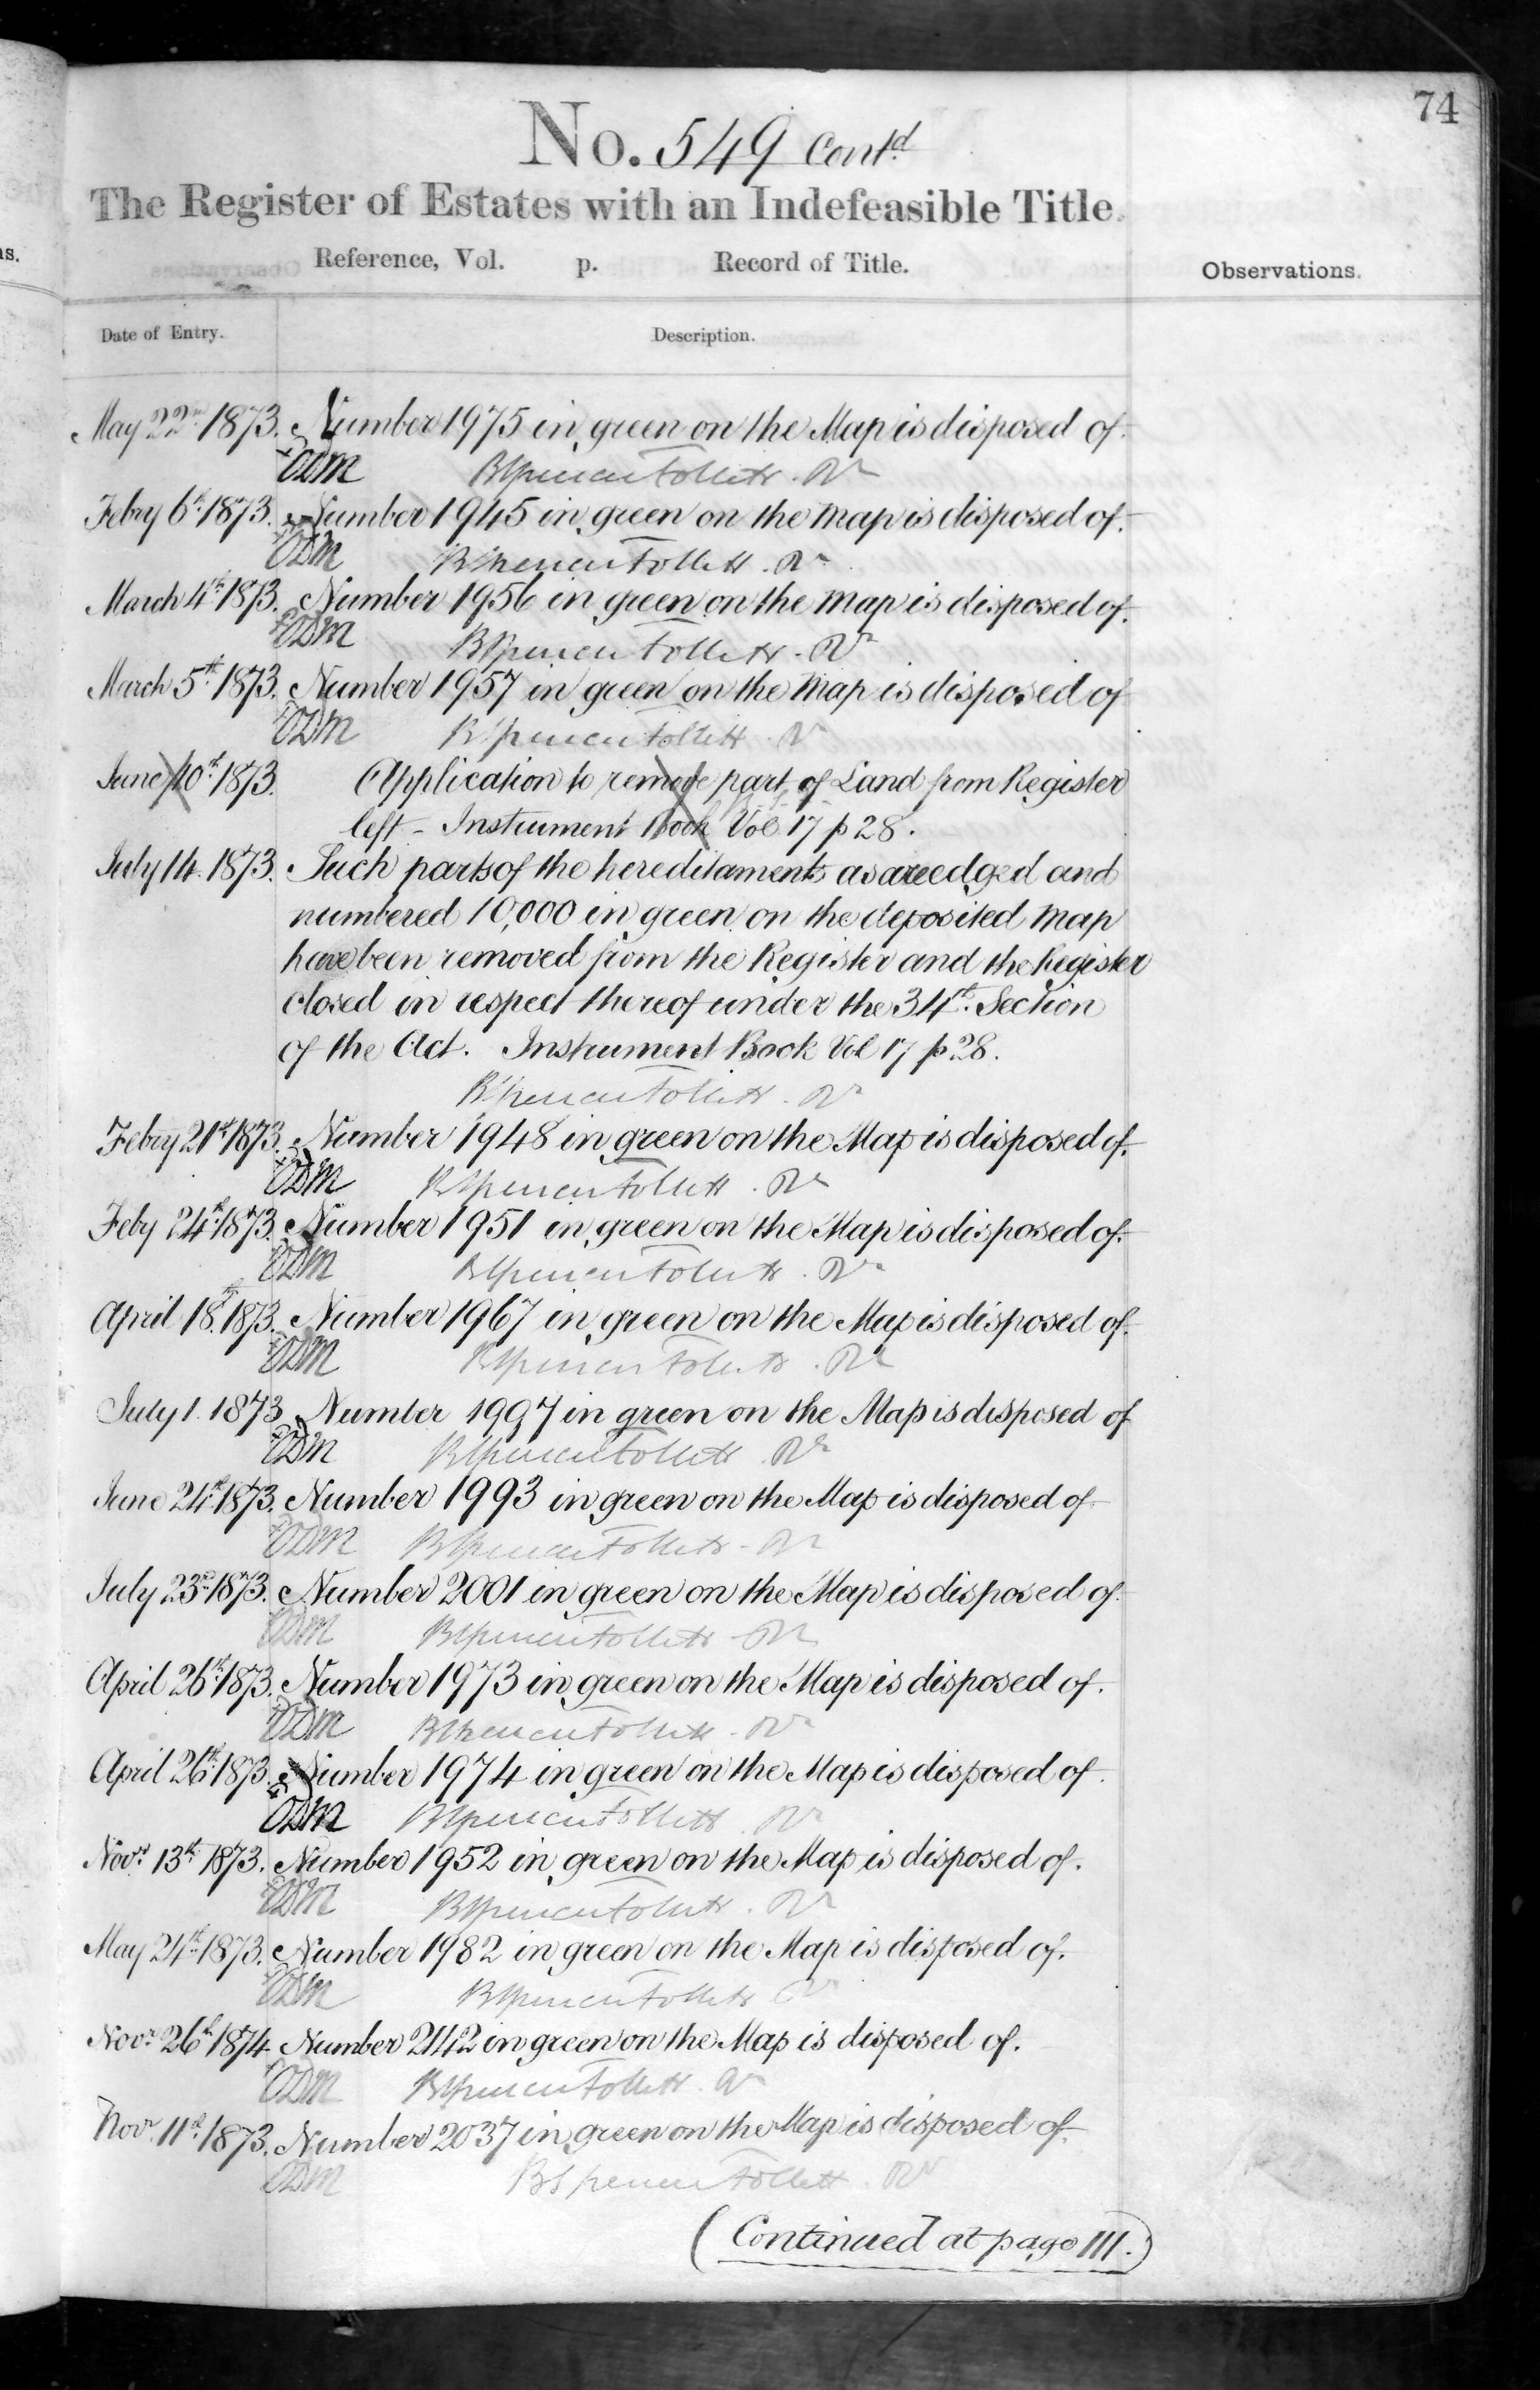 74
No. 549 Contd
The Register of Estates with an Indefeasible Title.
Reference, Vol. p. Record of Title.
Observations.
Date of Entry. Description.
May 22nd 1873. Number 1975 in green on the Map is disposed of.
ODM BSpencer Follett. Rr
Febry 6th 1873. Number 1945 in green on the map is disposed of.
ODM BSpencer Follett. Rr
March 4th 1873. Number 1956 in green on the map is disposed of.
ODM BSpencer Follett. Rr
March 5th 1873. Number 1957 in green on the map is disposed of
ODM BSpencer Follett. Rr
June 10th 1873. Application to remove part of Land from Register
left - Instrument Book Vol 17 p 28.
July 14. 1873. Such parts of the hereditaments as are edged and
numbered 10,000 in green on the deposited map
have been removed from the Register and the Register
closed in respect thereof under the 34th Section
of the Act. Instrument Book Vol 17 p 28.
BSpencer Follett. Rr
Febry 21st 1873. Number 1948 in green on the Map is disposed of.
ODM BSpencer Follett. Rr
Feby 24th 1873. Number 1951 in green on the Map is disposed of.
ODM BSpencer Follett. Rr
April 18th 1873. Number 1967 in green on the Map is disposed of.
ODM BSpencer Follett. Rr
July 1. 1873 Number 1997 in green on the Map is disposed of
ODM BSpencer Follett. Rr
June 24th 1873. Number 1993 in green on the Map is disposed of
ODM BSpencer Follett. Rr
July 23rd 1873. Number 2001 in green on the Map is disposed of.
ODM BSpencer Follett. Rr
April 26th 1873. Number 1973 in green on the Map is disposed of.
ODM BSpencer Follett. Rr
April 26th 1873. Number 1974 in green on the Map is disposed of.
ODM BSpencer Follett. Rr
Novr 13th 1873. Number 1952 in green on the Map is disposed of.
ODM BSpencer Follett. Rr
May 24th 1873. Number 1982 in green on the Map is disposed of.
ODM BSpencer Follett. Rr
Novr 26th 1874 Number 2142 in green on the Map is disposed of.
ODM BSpencer Follett. Rr
Novr 11th 1873. Number 2037 in green on the Map is disposed of
ODM BSpencer Follett. Rr
(Continued at page 111.)